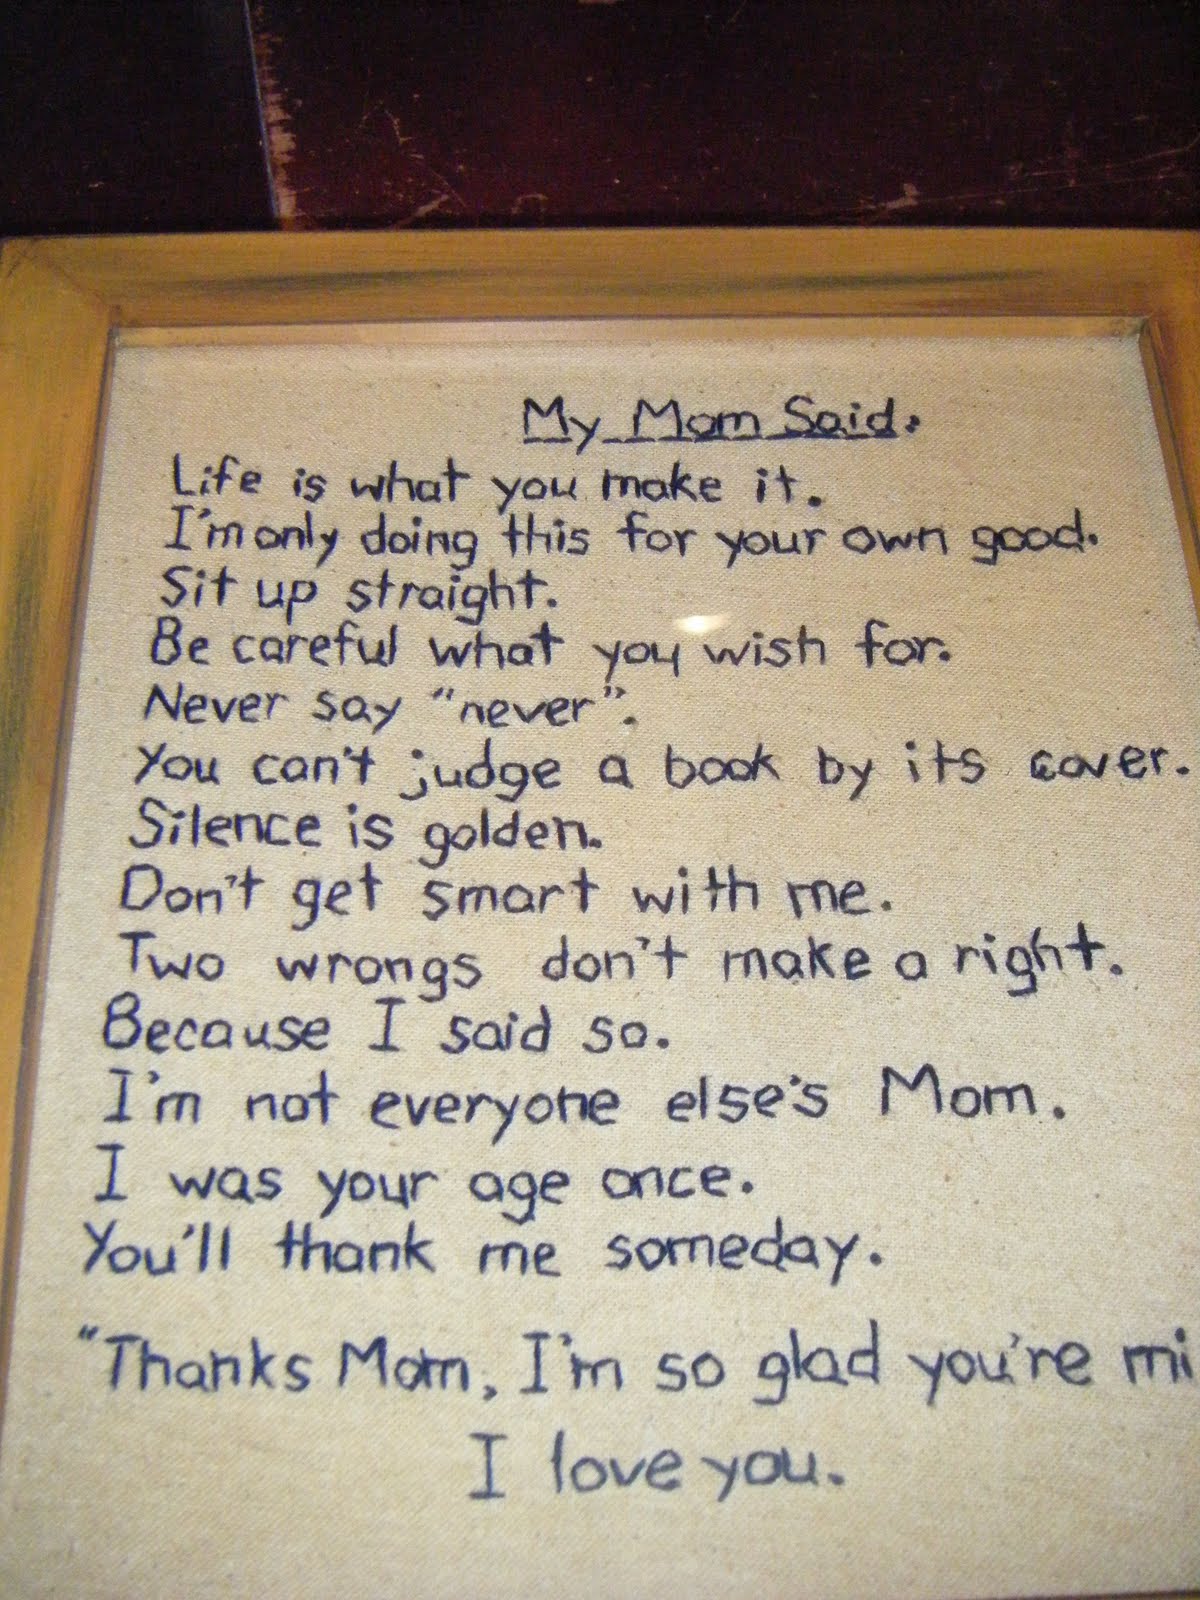 My Mom Said:
Life is what you make it.
I'm only doing this for your own good.
Sit up straight.
Be careful what you wish for.
Never say "never".
You can't judge a book by its cover.
Silence is golden.
Don't get smart with me.
Two wrongs don't make a right.
Because I said so.
I'm not everyone else's Mom.
I was your age once.
You'll thank me someday.
"Thanks Mom, I'm so glad you're mi
I love you.